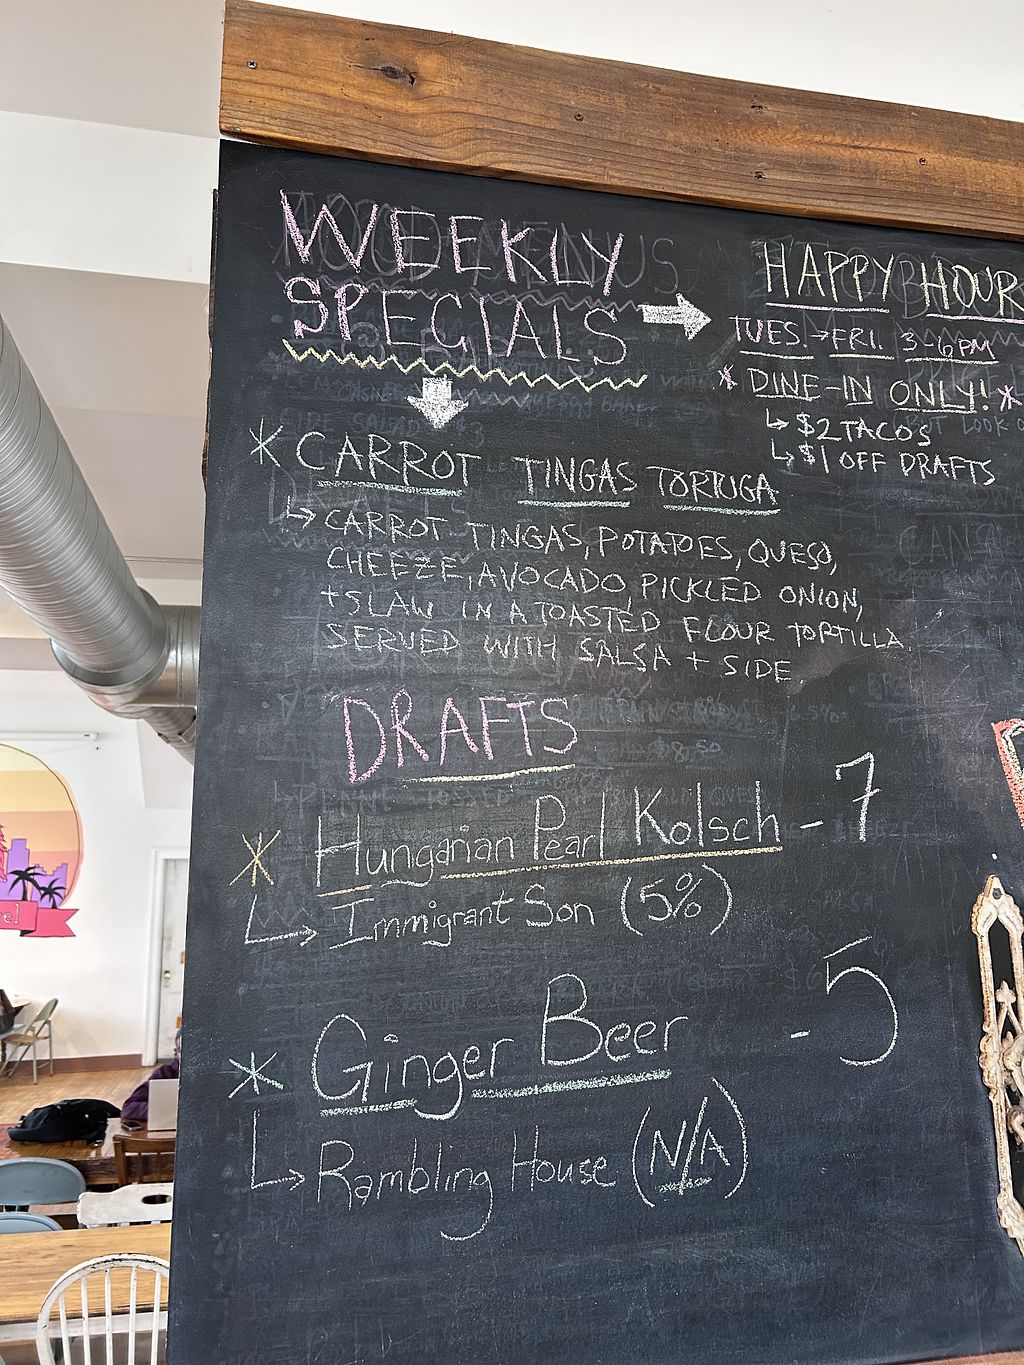 WEEKLY
SPECIALS
* CARROT TINGAS TORTUGA
CARROT TINGAS, POTATOES, QUESO,
CHEEZE, AVOCADO, PICKLED ONION,
+ SLAW IN A TOASTED FLOUR TORTILLA.
SERVED WITH SALSA + SIDE
HAPPY HOUR
TUES. → FRI. 3-6PM
* DINE-IN ONLY! *
↳ $2 TACOS
↳ $1 OFF DRAFTS
DRAFTS
* Hungarian Pearl Kolsch - 7
Immigrant Son (5%)
* Ginger Beer - 5
Rambling House (N/A)